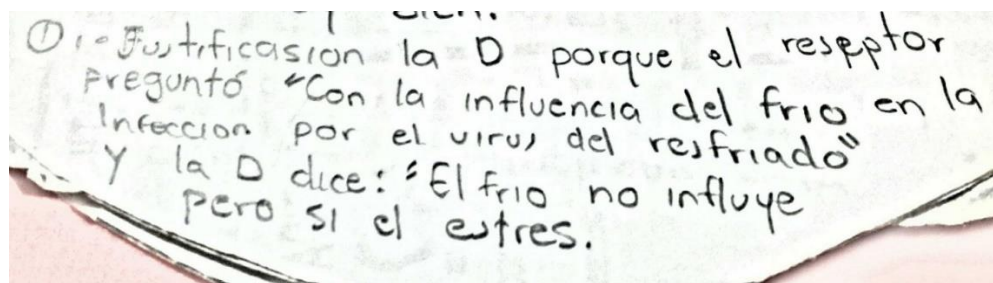 ① 1.- Justificasion la D porque el reseptor
preguntó "Con la influencia del frio en la
Infeccion por el virus del resfriado"
Y la D dice: "El frio no influye
pero si el estres.